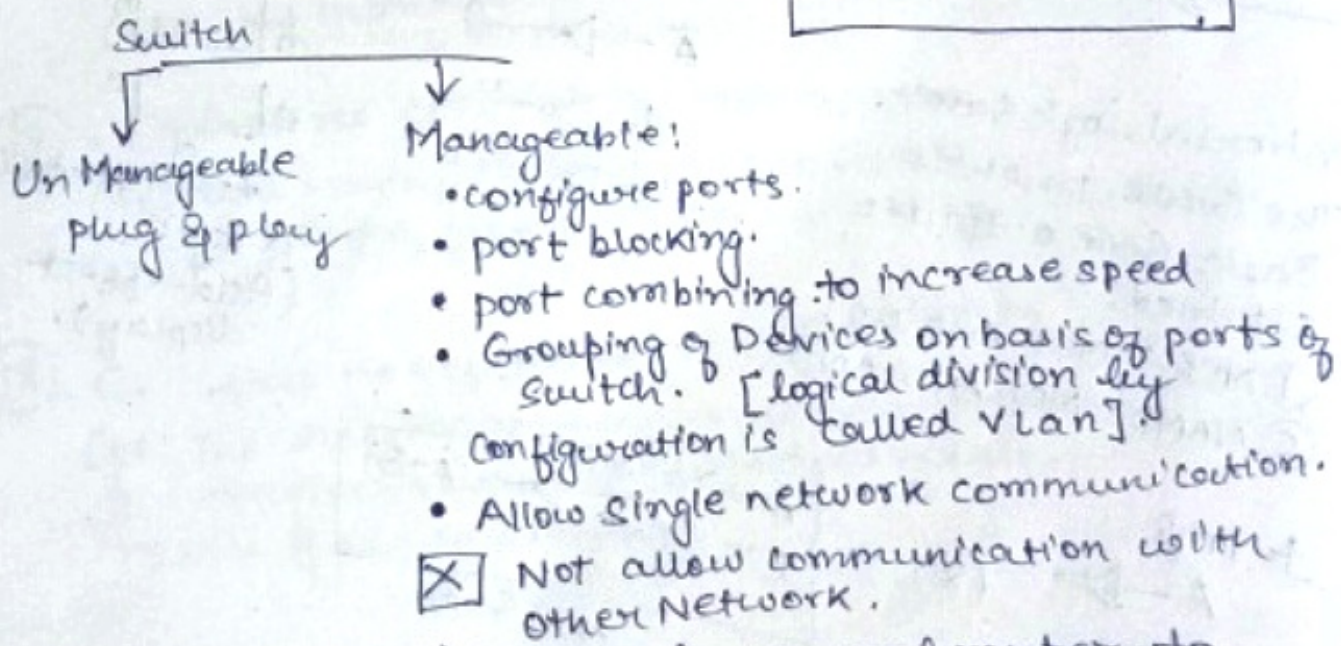 Switch
Un Manageable
plug & play
Manageable:
• configure ports.
• port blocking.
• port combining to increase speed
• Grouping of Devices on basis of ports of
switch. [logical division by
configuration is called VLan].
• Allow single network communication.
X Not allow communication with
other Network.